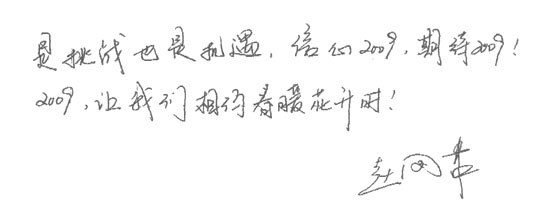 是挑战也是机遇，信心2009，期待2009！
2009，让我们相约春暖花开时！